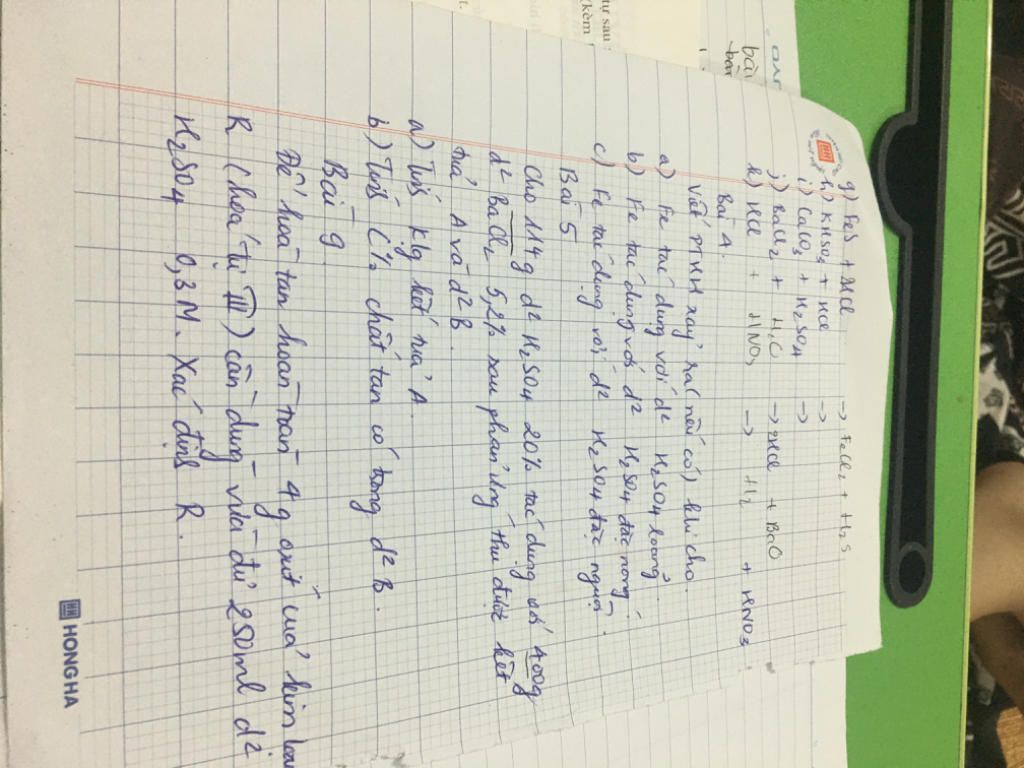 g) FeS + HCl → FeCl2 + H2S
h) KHSO3 + HCl →
i) CaCO3 + H2SO4 →
j) BaCl2 + H2O → 2HCl + BaO
k) HCl + HNO3 → H2 + HNO3
Bài 4.
Viết PTHH xảy ra (nếu có) khi cho
a) Fe tác dụng với d² H2SO4 loãng.
b) Fe tác dụng với d² H2SO4 đặc nóng.
c) Fe tác dụng với d² H2SO4 đặc nguội.
Bài 5
Cho 114g d² H2SO4 20% tác dụng với 400g
d² BaCl2 5,2% sau phản ứng thu được kết
tủa A và d² B.
a) Tính klg kết tủa A.
b) Tính C% chất tan có trong d² B.
Bài 9
Để hoà tan hoàn toàn 4g oxit của kim loại
R (hoá trị III) cần dùng vừa đủ 250ml d²
H2SO4 0,3M. Xác định R.
HONGHA
tự sau
(kèm
bài